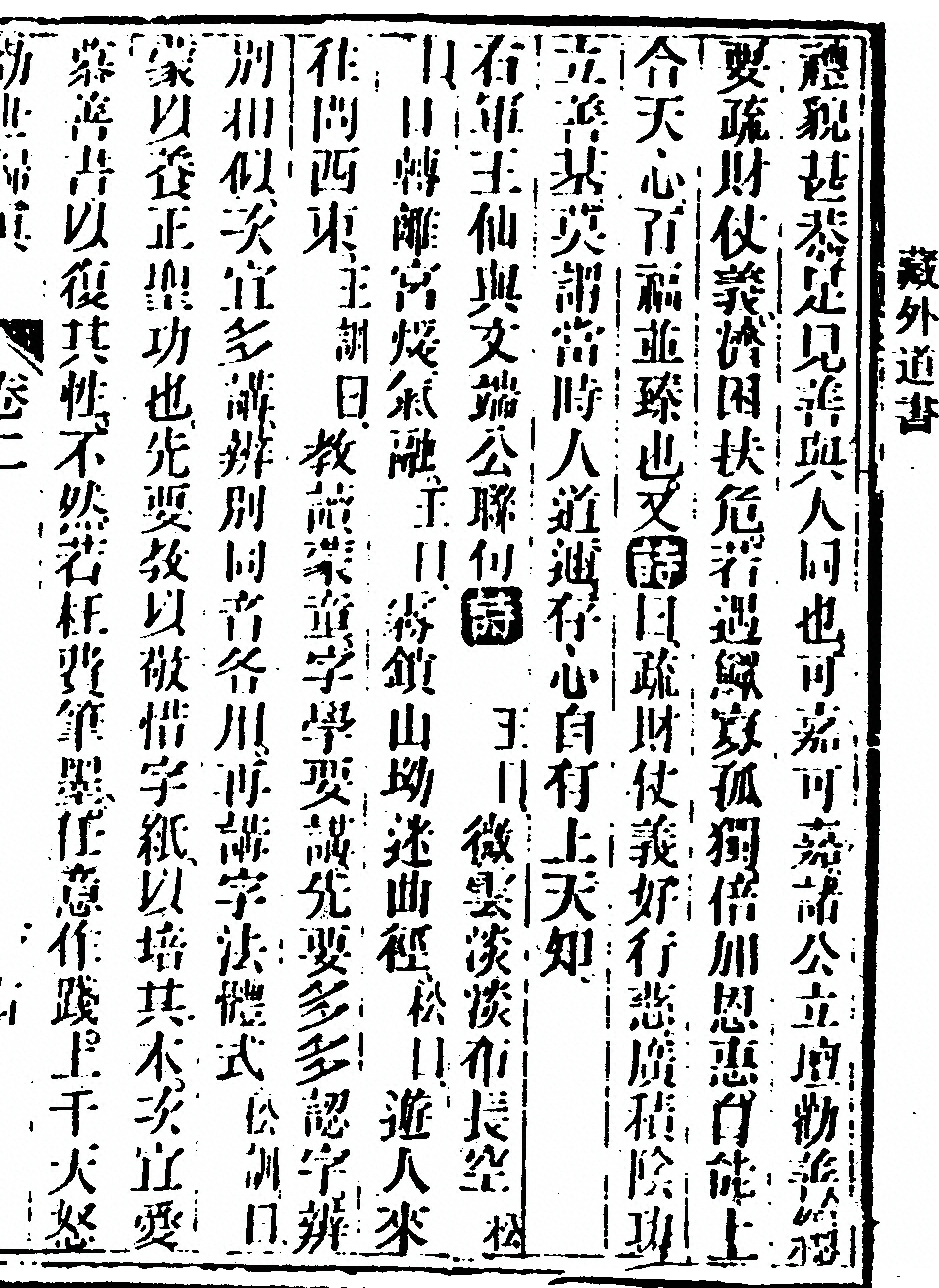 藏外道書
禮貌甚恭足見善與人同也可嘉可嘉諸公立壇勸善總
要疏財仗義濟困扶危若遇鰥寡孤獨倍加恩惠自能上
合天心百福並臻也又詩曰疏財仗義好行慈廣積陰功
立善基莫謂當時人道遠存心自有上天知
右軍王仙與文端公聯句詩 王曰微雲淡淡布長空 松
曰日轉離宮煖氣融王曰霧鎖山坳迷曲徑松曰遊人來
往問西東王訓曰教讀蒙童字學要講先要多多認字辨
別相似次宜多講辨別同音各用再講字法體式 松訓曰
蒙以養正聖功也先要教以敬惜字紙以培其本次宜愛
慕善書以復其性不然若枉費筆墨任意作踐上干天怒
卷二